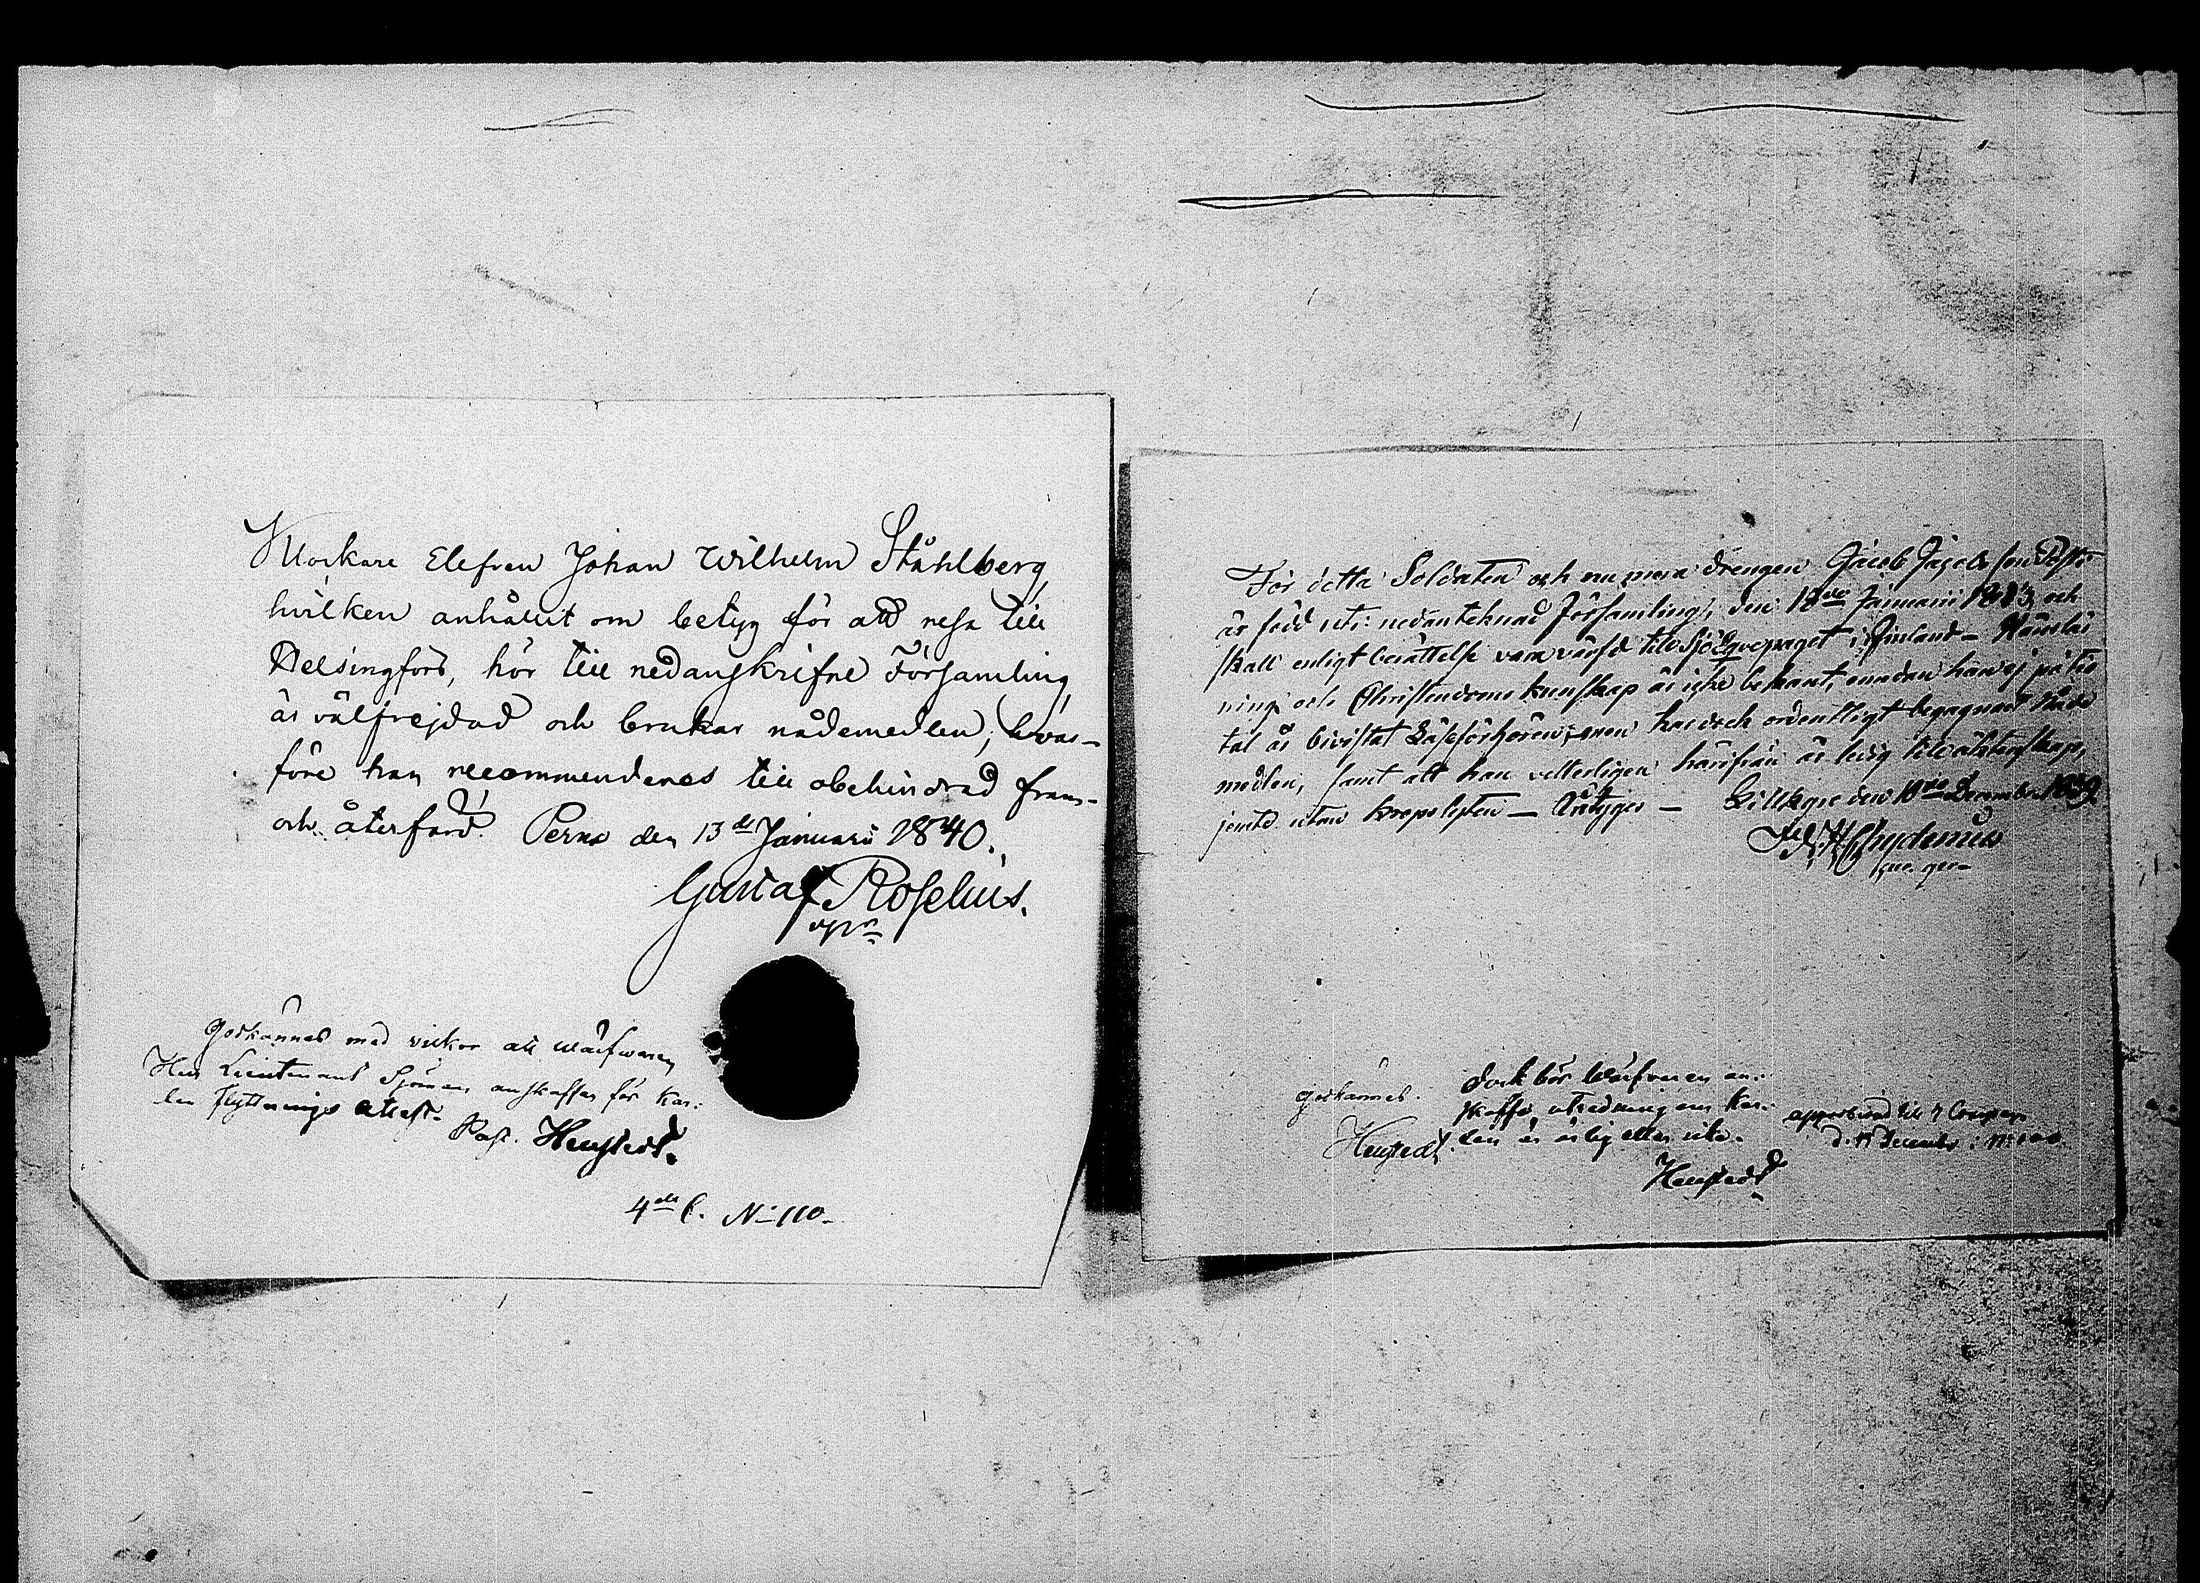 Klockare Elefven Johan Wilhelm Ståhlberg,
hvilken anhållit om betyg för att resa till
Helsingfors, hör till nedanskrifne Församling,
är välfrejdad och brukar nådemedlen; hvar-
före han recommenderas till obehindrad fram-
och återfärd. Perno den 13de Januarii 1840.
Gustaf Roselius.
Godkännes med vilkor att Wärfvaren
Herr Lieutenant Sjöman anskaffar för Kar:
len flyttnings attest.
Past. Heustedt.
4de C. No 110.
För detta Soldaten och nu mera drengen Jacob Jacobsson
är född uti nedanteknad församling, den 18de Januarii 1813, och
skall enligt berättelse vara värfd till Sjö Equipaget i Finland - Hans läs
ning och Christendoms kunskap är icke bekant, emedan han ej på tio
tal år bivistat Läseförhören; men har dock ordentligt begagnat Nåde
medlen, samt att han vetterligen härifrån är ledig till äktenskap,
jemte utan kropslyten - Intygar - Lillkyro den 10de December 1839.
Chydenius
Godkännes.
Heustedt.
dock bör Wärfvaren an:
skaffa utredning om Kar:
len är ärlig eller icke.
Heustedt
approberad till 7 Compag.